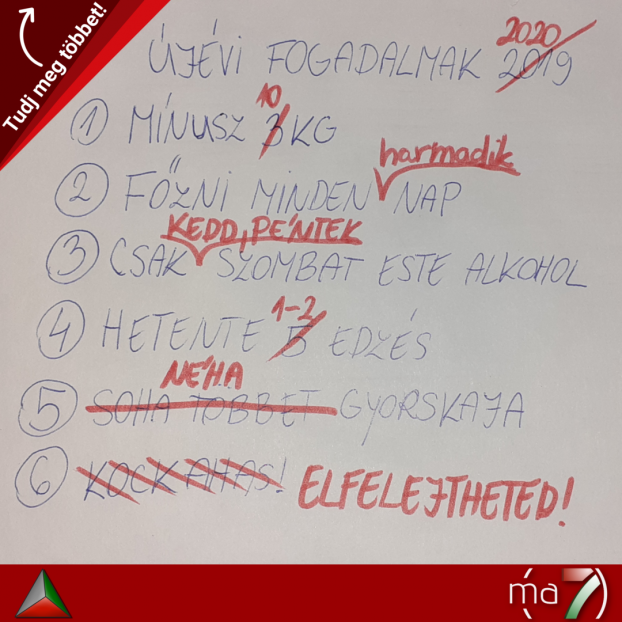 Tudj meg többet!
2020
ÚJÉVI FOGADALMAK 2019
10
1 MÍNUSZ 3 KG
harmadik
2 FŐZNI MINDEN NAP
KEDD, PÉNTEK
3 CSAK SZOMBAT ESTE ALKOHOL
1-2
4 HETENTE 5 EDZÉS
NÉHA
5 SOHA TÖBBET GYORSKAJA
6 KOCKAHAS! ELFELEJTHETED!
(ma7)